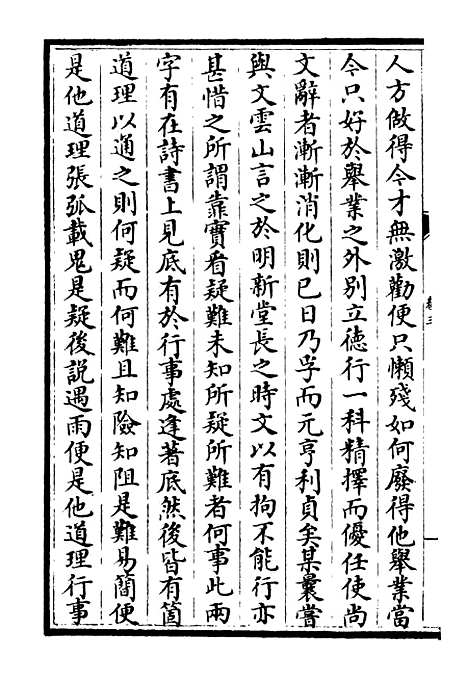 人方做得今才無激勸便只懶殘如何廢得他舉業當
今只好於舉業之外別立徳行一科精擇而優任使尚
文辭者漸漸消化則已日乃孚而元亨利貞矣某曩嘗
與文雲山言之於明新堂長之時文以有拘不能行亦
甚惜之所謂靠實看疑難未知所疑所難者何事此兩
字有在詩書上見底有於行事處逢著底然後皆有箇
道理以通之則何疑而何難且知險知阻是難易簡便
是他道理張弧載鬼是疑後説遇雨便是他道理行事
卷三